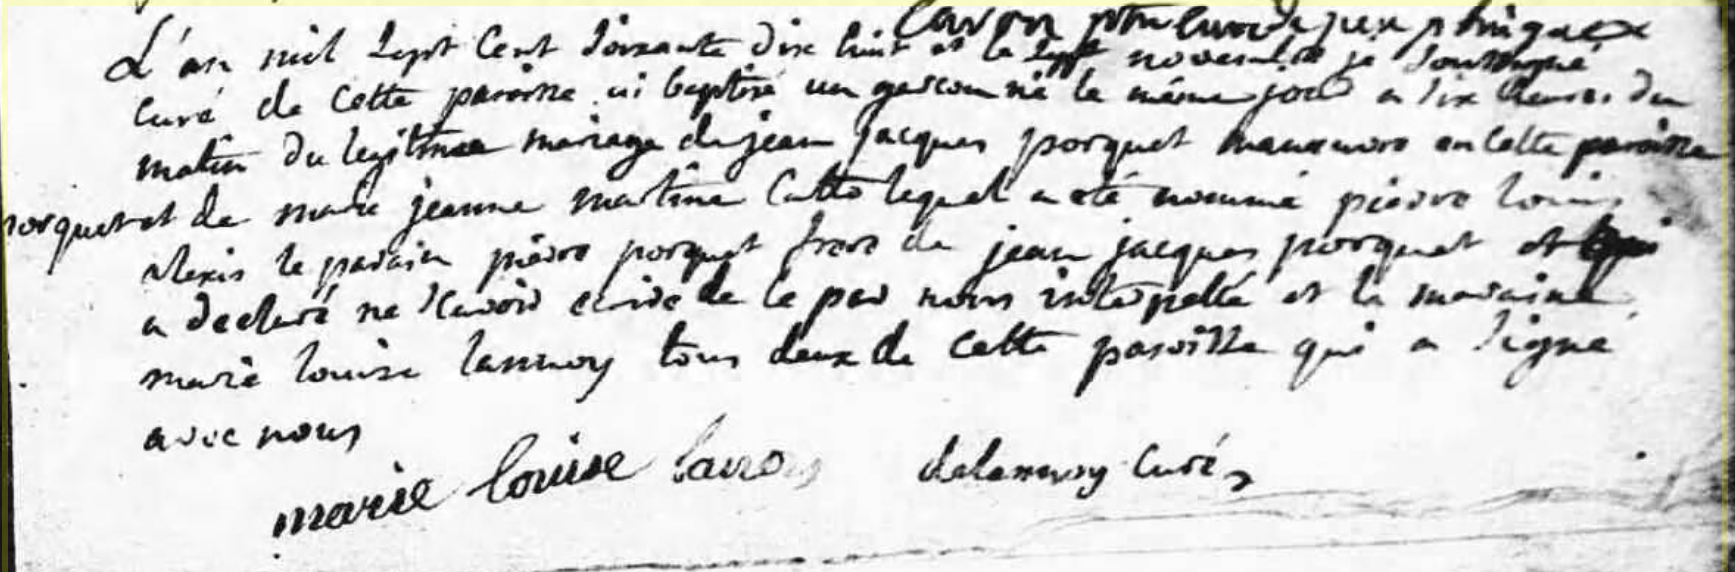 L'an mil sept cent soixante dix huit et le sept novembre je soussigné
curé de cette paroisse ai baptisé un garcon né le même jour a six heures du
matin du legitime mariage de jean jacques porquet en cette paroisse
porquet et de marie jeanne martine Catto lequel a eté nommé pierre louis
alexis le parain pierre porquet frere de jean jacques porquet et
a declaré ne scavoir ecrire de ce par nous interpellé et la maraine
marie louise lannoy tous deux de cette paroisse qui a signé
avec nous
marie louise lannoy delannoy curé